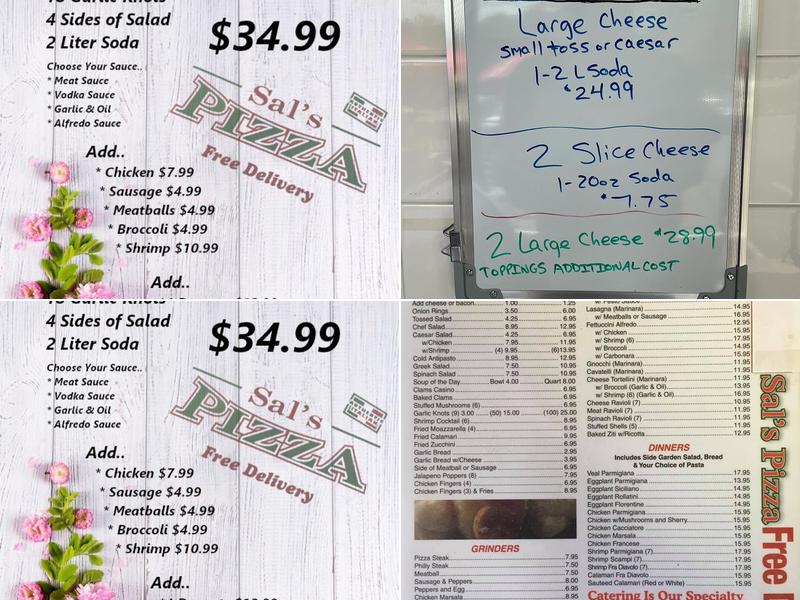 Garlic Knots
4 Sides of Salad
2 Liter Soda
$34.99
Choose Your Sauce..
* Meat Sauce
* Vodka Sauce
* Garlic & Oil
* Alfredo Sauce
Sal's
PIZZA
Free Delivery
Add..
* Chicken $7.99
* Sausage $4.99
* Meatballs $4.99
* Broccoli $4.99
* Shrimp $10.99
Add..
Large Cheese
small toss or caesar
1-2 L Soda
$24.99
2 Slice Cheese
1-20oz Soda
$7.75
2 Large Cheese $28.99
TOPPINGS ADDITIONAL COST
Garlic Knots
4 Sides of Salad
2 Liter Soda
$34.99
Choose Your Sauce..
* Meat Sauce
* Vodka Sauce
* Garlic & Oil
* Alfredo Sauce
Sal's
PIZZA
Free Delivery
Add..
* Chicken $7.99
* Sausage $4.99
* Meatballs $4.99
* Broccoli $4.99
* Shrimp $10.99
Add..
Add cheese or bacon 1.00 1.25
Onion Rings 3.50 6.00
Tossed Salad 4.25 6.95
Chef Salad 8.95 12.95
Caesar Salad 4.25 6.95
w/Chicken 7.95 11.95
w/Shrimp (4) 9.95 (6)13.95
Cold Antipasto 8.95 12.95
Greek Salad 7.50 10.95
Spinach Salad 7.50 10.95
Soup of the Day Bowl 4.00 Quart 8.00
Clams Casino 6.95
Baked Clams 6.95
Stuffed Mushrooms (6) 6.95
Garlic Knots (9) 3.00 (50) 15.00 (100) 25.00
Shrimp Cocktail (6) 8.95
Fried Moazzarella (4) 6.95
Fried Calamari 9.95
Fried Zucchini 6.95
Garlic Bread 2.95
Garlic Bread w/Cheese 3.95
Side of Meatball or Sausage 6.95
Jalapeno Poppers (8) 7.95
Chicken Fingers (4) 6.95
Chicken Fingers (3) & Fries 8.95
GRINDERS
Pizza Steak 7.95
Philly Steak 7.50
Meatball 7.50
Sausage & Peppers 8.00
Peppers and Egg 6.95
Chicken Marsala 8.95
w/ Pesto Sauce
Lasagna (Marinara) 14.95
w/ Meatballs or Sausage 16.95
Fettuccini Alfredo 12.95
w/ Chicken 15.95
w/ Shrimp (6) 17.95
w/ Broccoli 14.95
w/ Carbonara 15.95
Gnocchi (Marinara) 11.95
Cavatelli (Marinara) 11.95
Cheese Tortellini (Marinara) 11.95
w/ Broccoli (Garlic & Oil) 13.95
w/ Shrimp (6) (Garlic & Oil) 16.95
Cheese Ravioli (7) 10.95
Meat Ravioli (7) 11.95
Spinach Ravioli (7) 11.95
Stuffed Shells (5) 11.95
Baked Ziti w/Ricotta 12.95
DINNERS
Includes Side Garden Salad, Bread
& Your Choice of Pasta
Veal Parmigiana 17.95
Eggplant Parmigiana 13.95
Eggplant Siciliano 14.95
Eggplant Rollatini 14.95
Eggplant Florentine 14.95
Chicken Parmigiana 15.95
Chicken w/Mushrooms and Sherry 15.95
Chicken Cacciatore 15.95
Chicken Marsala 15.95
Chicken Francese 15.95
Shrimp Parmigiana (7) 17.95
Shrimp Scampi (7) 17.95
Shrimp Fra Diavolo (7) 17.95
Calamari Fra Diavolo 15.95
Sauteed Calamari (Red or White) 15.95
Catering Is Our Specialty
Sal's Pizza
Free